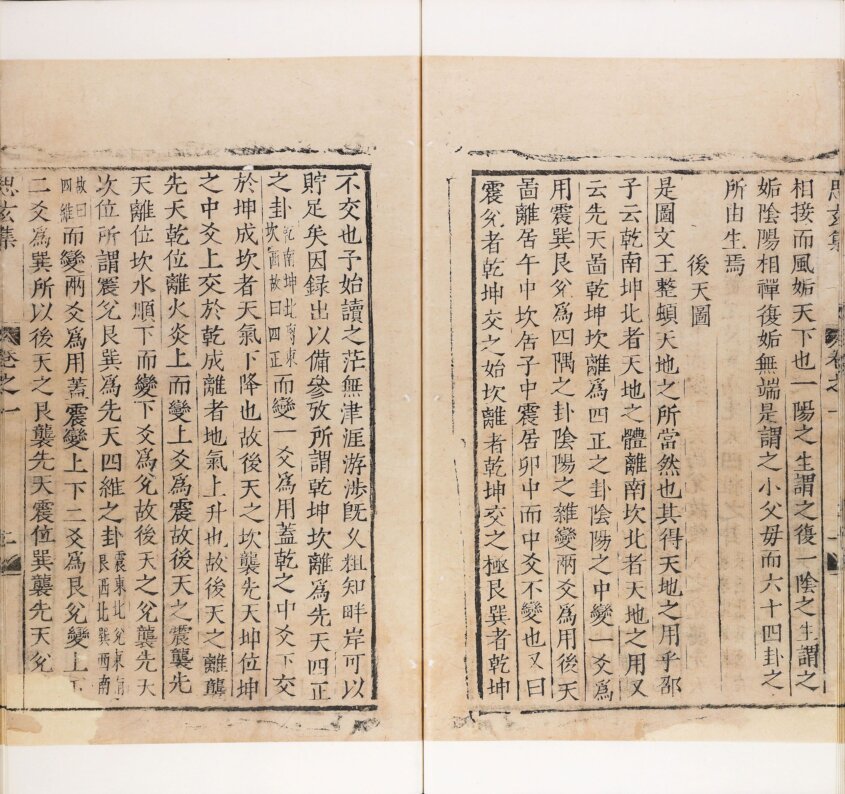 思玄集
卷之一
相接而風姤天下也一陽之生謂之復一陰之生謂之
姤陰陽相禪復姤無端是謂之小父母而六十四卦之
所由生焉
後天圖
是圖文王整頓天地之所當然也其得天地之用乎邵
子云乾南坤北者天地之體離南坎北者天地之用又
云先天啚乾坤坎離爲四正之卦陰陽之中變一爻爲
用震巽艮兊爲四隅之卦陰陽之雜變兩爻爲用後天
啚離居午中坎居子中震居卯中而中爻不變也又曰
震兊者乾坤交之始坎離者乾坤交之極艮巽者乾坤
不交也予始讀之茫無津涯游涉旣久粗知畔岸可以
貯足矣因録出以備參攷所謂乾坤坎離爲先天四正
之卦乾南坤北離東坎西故曰四正而變一爻爲用蓋乾之中爻下交
於坤成坎者天氣下降也故後天之坎襲先天坤位坤
之中爻上交於乾成離者地氣上升也故後天之離襲
先天乾位離火炎上而變上爻爲震故後天之震襲先
天離位坎水順下而變下爻爲兊故後天之兊襲先天
坎位所謂震兊艮巽爲先天四維之卦震東北兊東南艮西北巽西南
故曰四維而變兩爻爲用蓋震變上下二爻爲艮兊變上下
二爻爲巽所以後天之艮襲先天震位巽襲先天兊
思玄集
卷之一